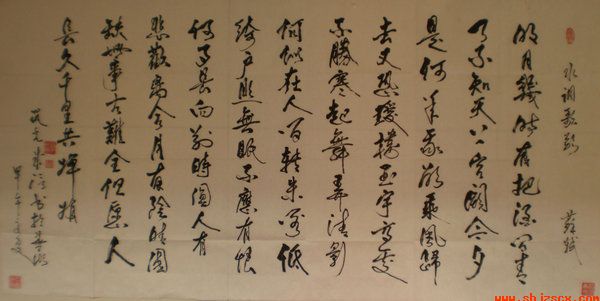 水調歌头
苏軾
明月幾时有把酒问青
天不知天上宫阙今夕
是何年我欲乘風歸
去又恐瓊樓玉宇高處
不勝寒起舞弄清影
何似在人间转朱阁低
绮户照無眠不應有恨
何事長向别時圓人有
悲歡离合月有陰晴圓
缺此事古難全但愿人
長久千里共婵娟
书於
甲午